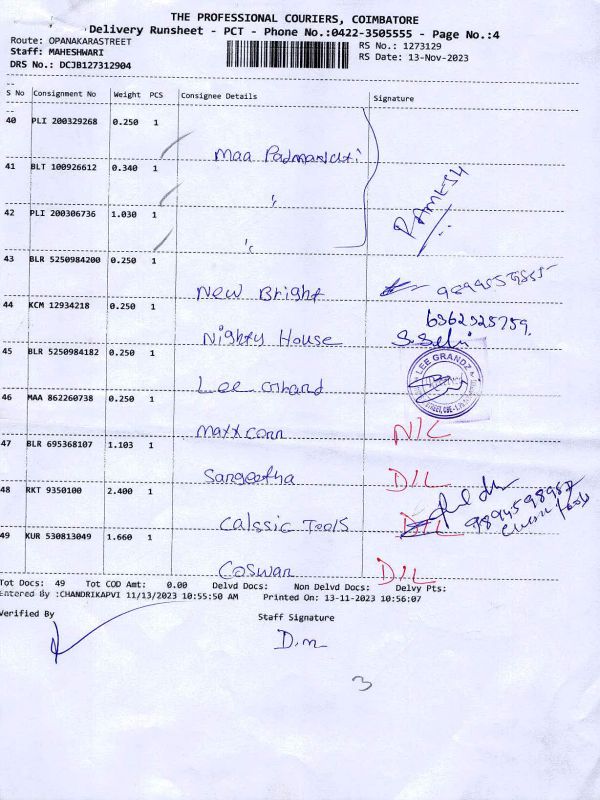 THE PROFESSIONAL COURIERS, COIMBATORE
Delivery Runsheet - PCT - Phone No.:0422-3505555 - Page No.:4
Route: OPANAKARASTREET
RS No.: 1273129
Staff: MAHESHWARI
RS Date: 13-Nov-2023
DRS No.: DCJB127312904
S No Consignment No Weight PCS Consignee Details Signature
40 PLI 200329268 0.250 1
Maa Padmavathi
41 BLT 100926612 0.340 1
"
RAMESH
42 PLI 200306736 1.030 1
"
43 BLR 5250984200 0.250 1
New Bright
44 KCM 12934218 0.250 1
6362325759
Nighty House S. Selvi
45 BLR 5250984182 0.250 1
LEE GRANDZ
Lee Ghrand
46 MAA 862260738 0.250 1
Maxx conn N/L
47 BLR 695368107 1.103 1
Sangeetha D/L
48 RKT 9350100 2.400 1
9894598957
Calssic Tools D/L
49 KUR 530813049 1.660 1
Coswan D/L
Tot Docs: 49 Tot COD Amt: 0.00 Delvd Docs: Non Delvd Docs: Delvy Pts:
Entered By :CHANDRIKAPVI 11/13/2023 10:55:50 AM Printed On: 13-11-2023 10:56:07
Verified By
Staff Signature
D.m
3